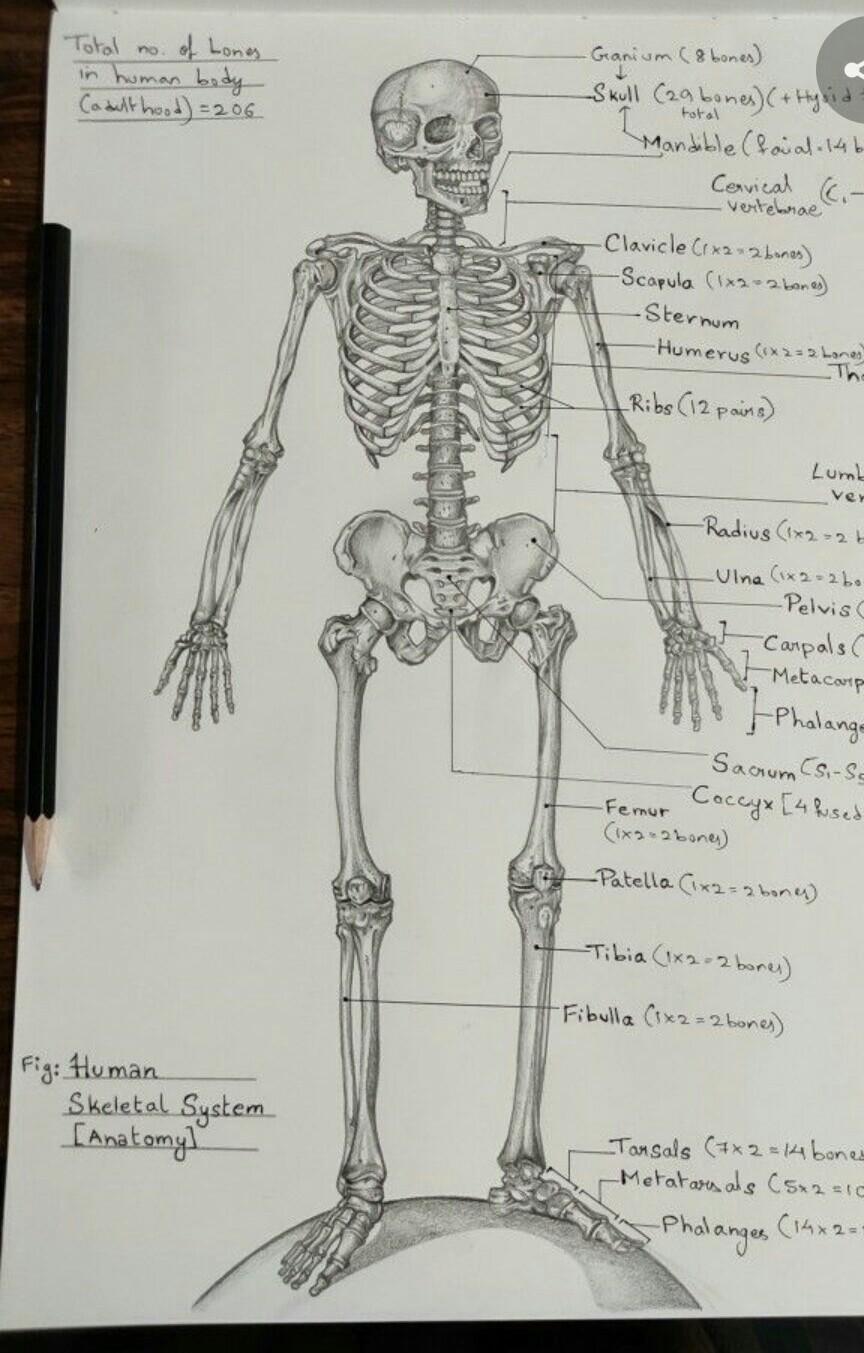 Total no. of bones
in human body
(adulthood) = 206
Cranium (8 bones)
Skull (29 bones) (+ Hyoid
total
Mandible (facial-14 b
Cervical (C₁ –
vertebrae
Clavicle (1x2=2bones)
Scapula (1x2=2bones)
Sternum
Humerus (1x2=2bones)
Tho
Ribs (12 pairs)
Lumb
ver
Radius (1x2=2 b
Ulna (1x2=2bo
Pelvis (
Carpals (
Metacarp
Phalange
Sacrum (S₁-S₅
Coccyx [4 fused
Femur
(1x2=2bones)
Patella (1x2=2bones)
Tibia (1x2=2bones)
Fibulla (1x2=2bones)
Fig: Human
Skeletal System
[Anatomy]
Tarsals (7x2=14 bones
Metatarsals (5x2=10
Phalanges (14x2=